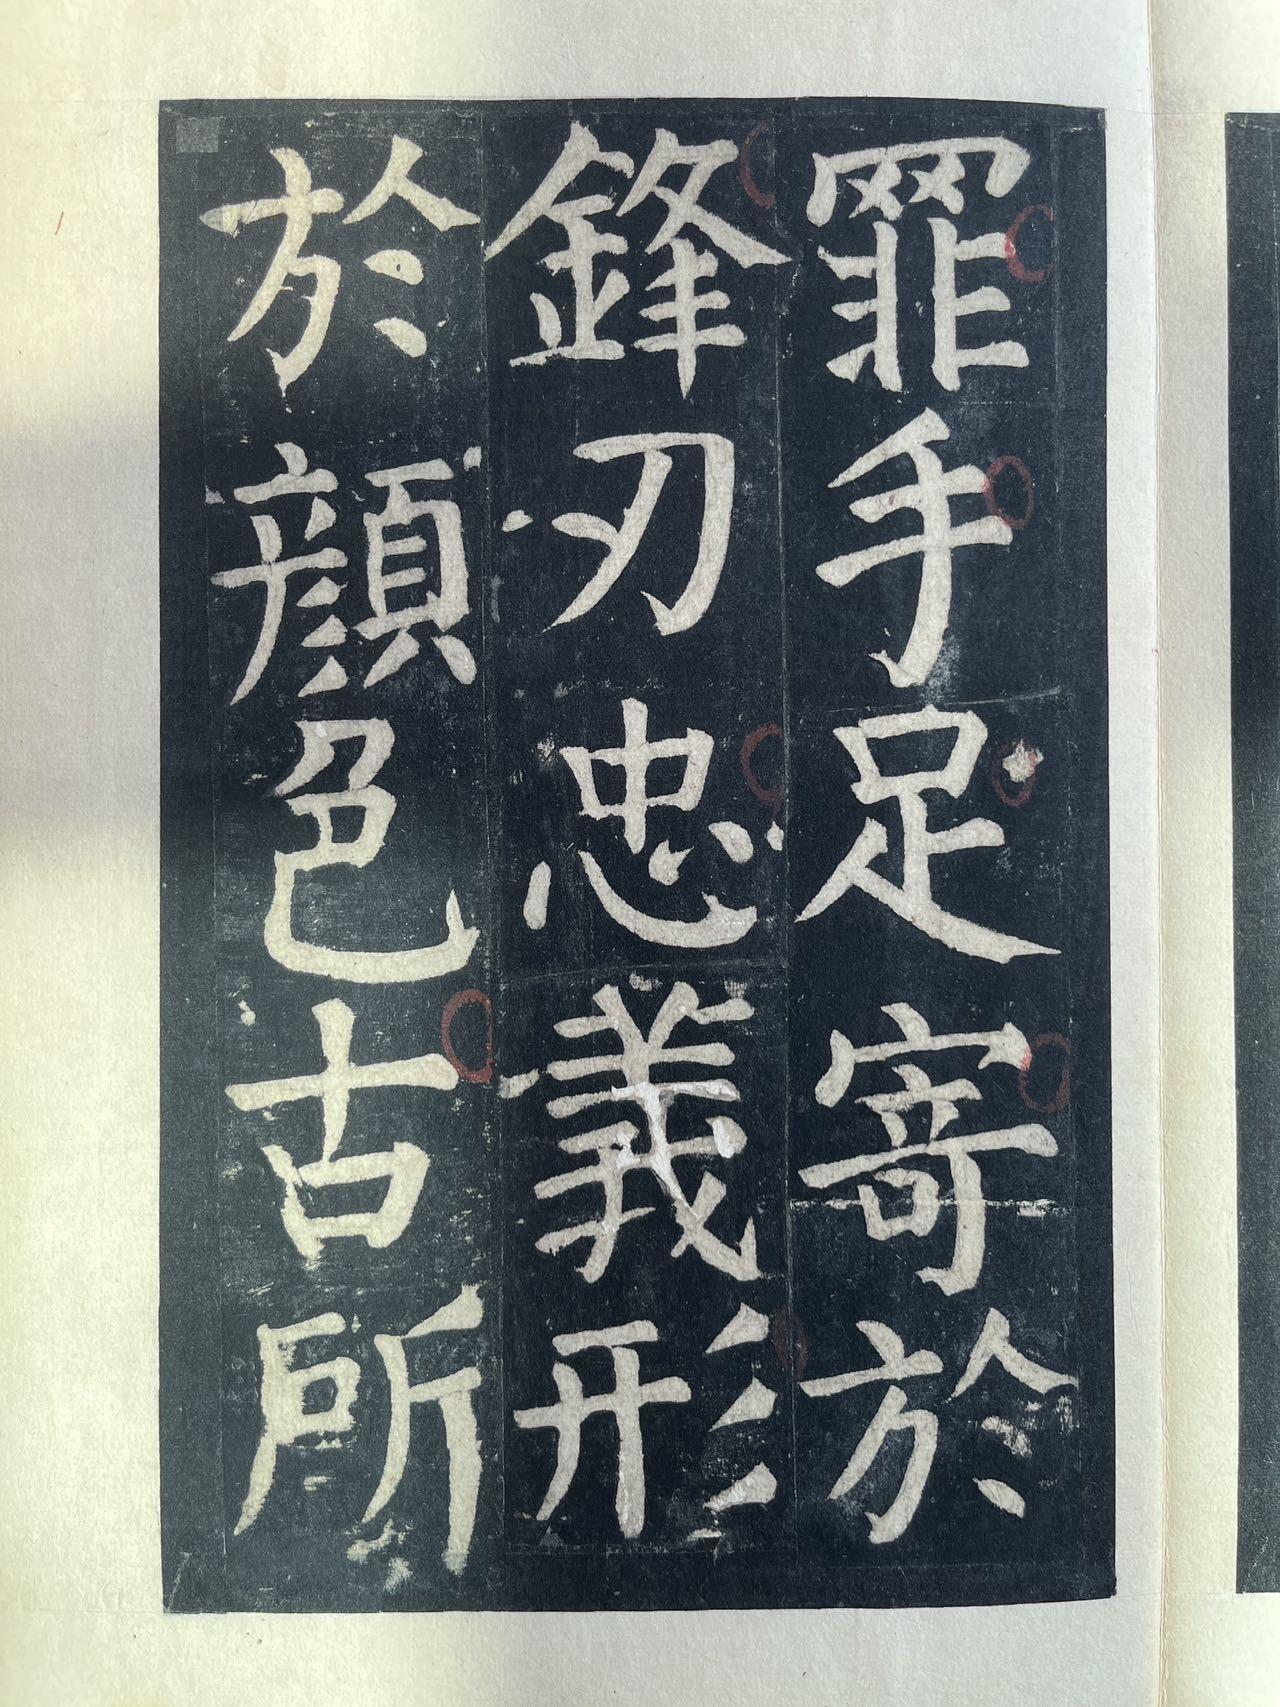 罪手足寄於
鋒刃忠義形
於顔色古所